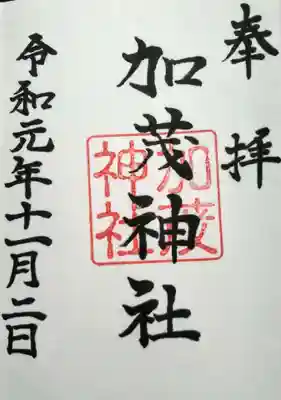 奉拝
加茂神社
加茂
神社
令和元年十一月二日